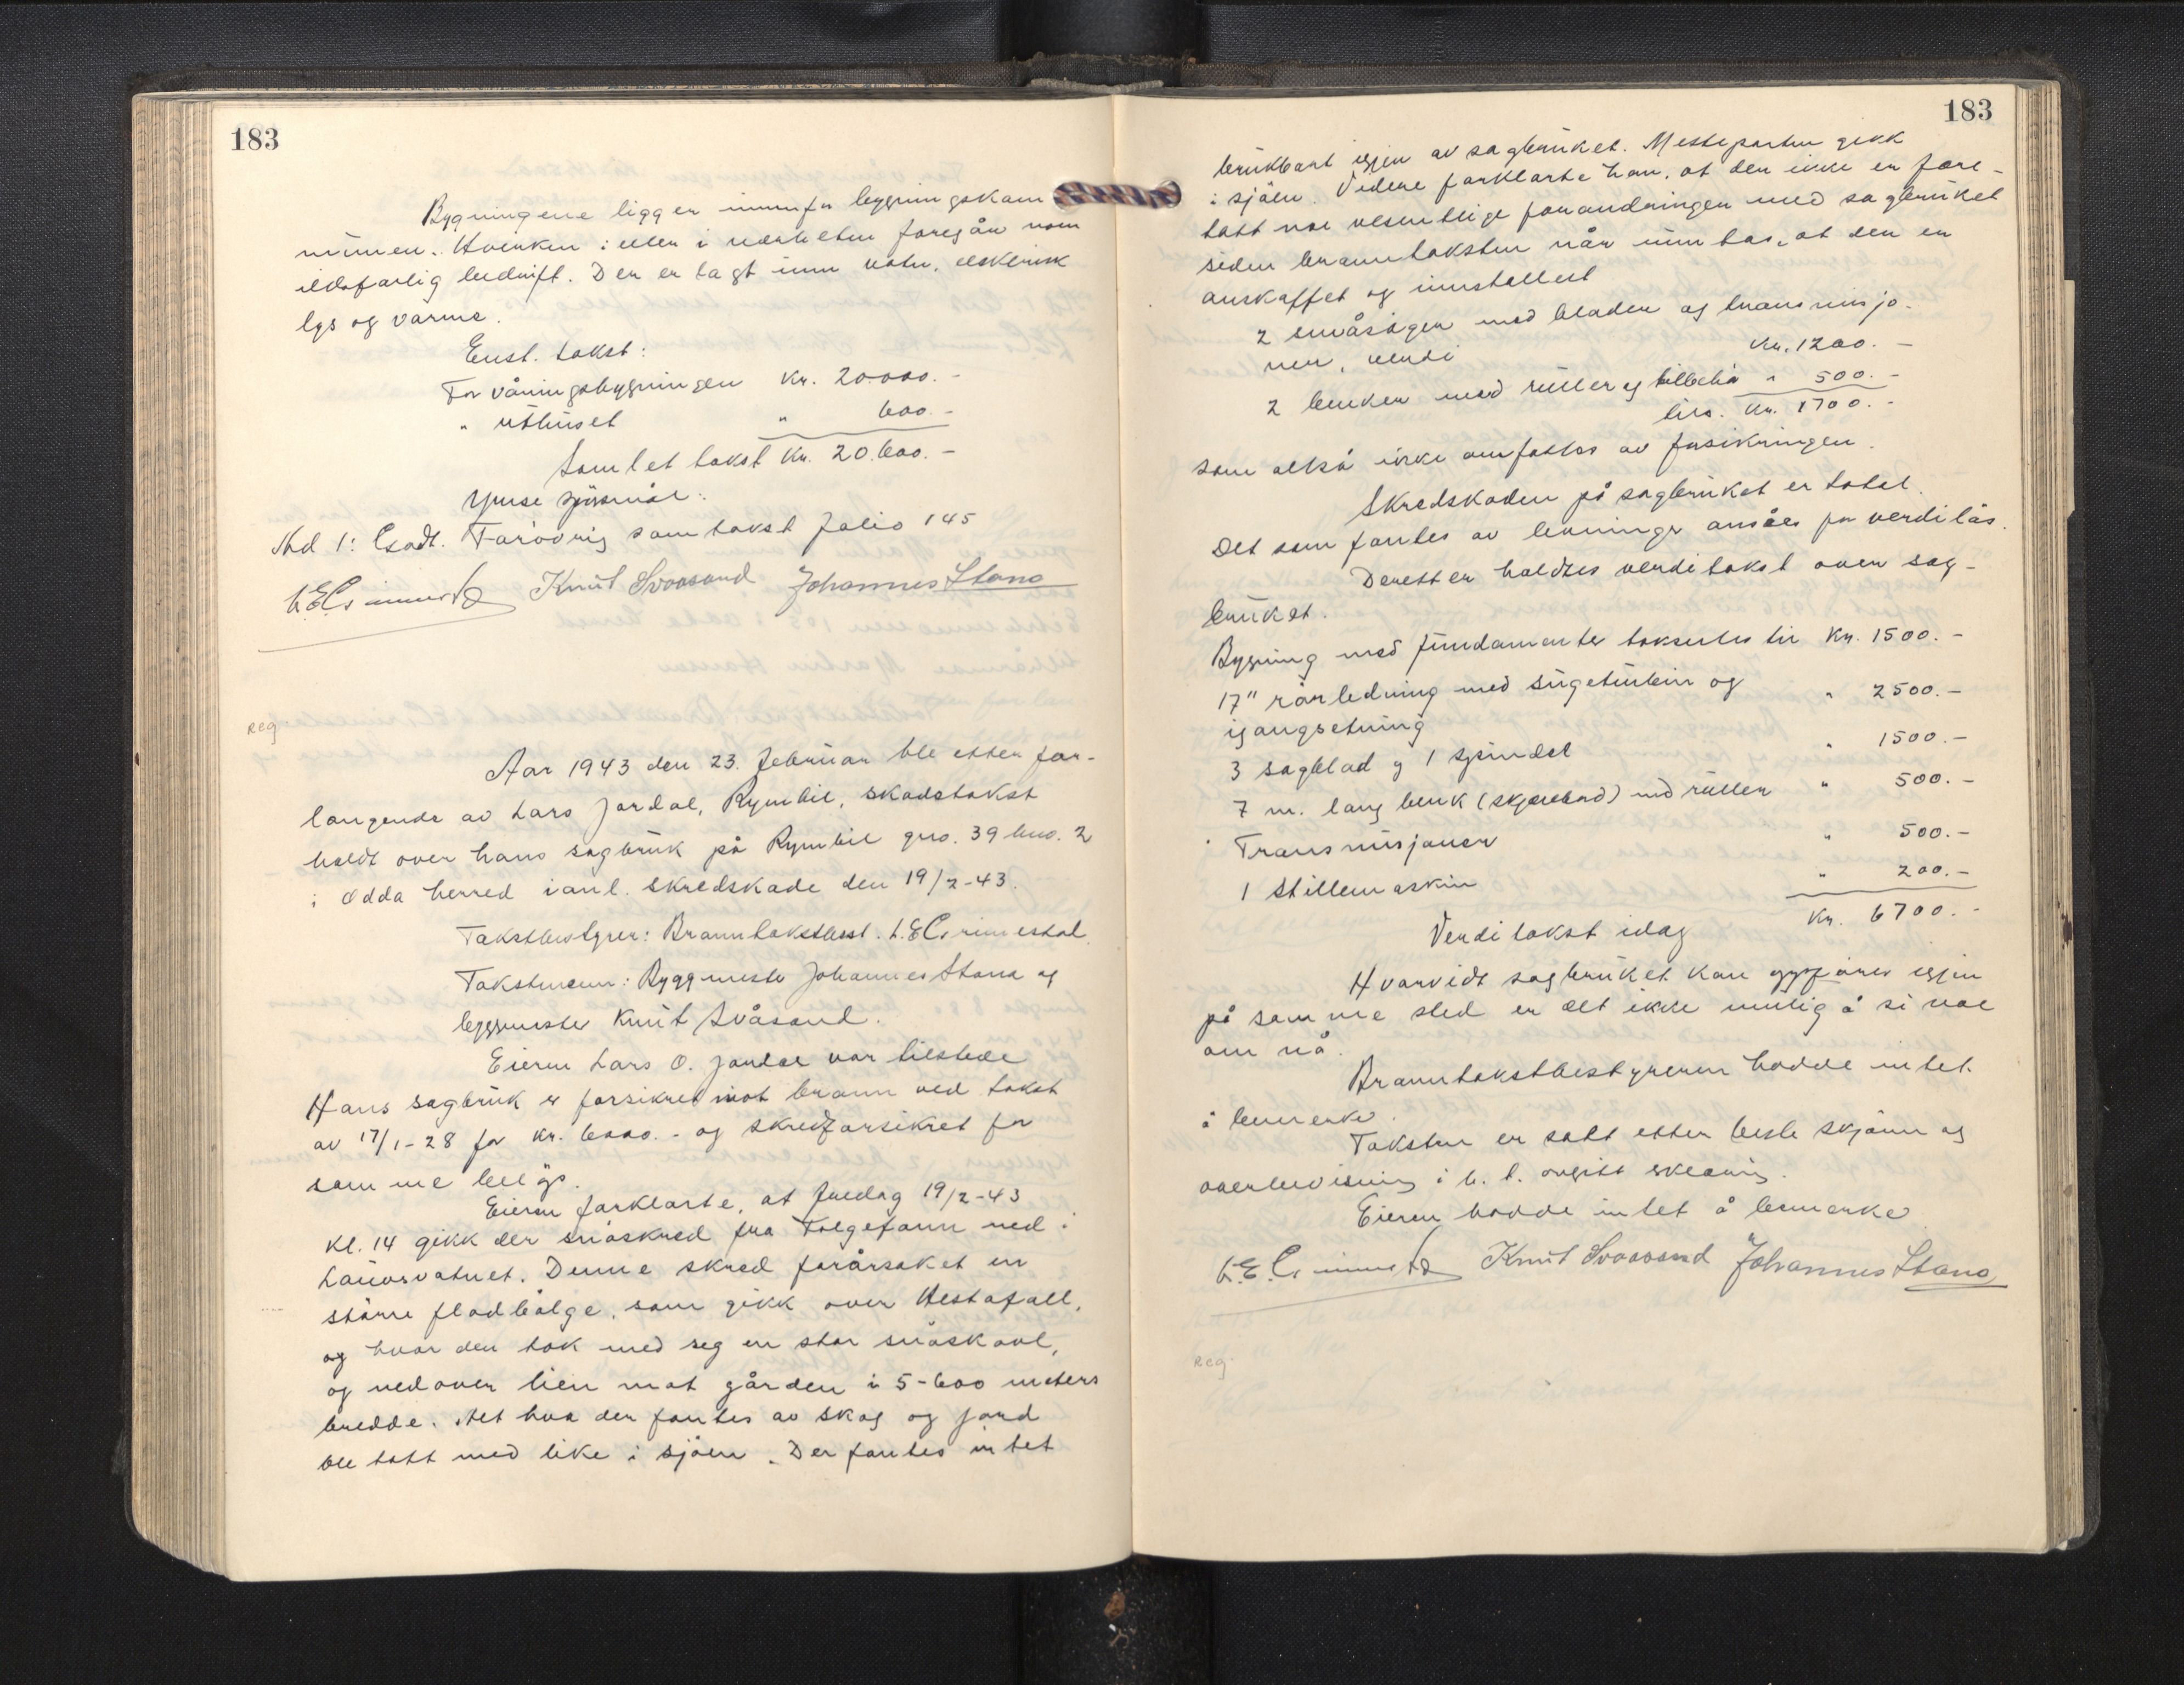 183
Bygningene ligger innenfor bygningskom
munen. Hverken i eller i nærheten foregår noen
ildsfarlig bedrift. Der er lagt inn vatn, elektrisk
lys og varme.
Enst. takst:
For våningsbygningen Kr. 20.000.-
" uthuset " 600.-
Samlet takst Kr. 20.600.-
Ymse spörsmål:
Ad 1: Godt. Forövrig som takst folio 145
L.E. Grimestad Knut Svaasand Johannes Stana
Reg
Aar 1943 den 23. februar ble etter for-
langende av Lars Jordal, Rymbil, skadetakst
holdt over hans sagbruk på Rymbil gno. 39 bno. 2
i Odda herred i anl. skredskade den 19/2-43.
Takstbestyrer: Branntakstbest. L.E. Grimestad.
Takstmenn: Byggmester Johannes Stana og
byggmester Knut Svåsand.
Eieren Lars O. Jordal var tilstede
Hans sagbruk er forsikret mot brann ved takst
av 17/1-28 for kr. 6000.- og skredforsikret for
samme belöp.
Eieren forklarte, at fredag 19/2-43
kl. 14 gikk der snöskred fra Folgefonn ned i
vatnet. Denne skred forårsaket en
större flodbölge, som gikk over Hestafall,
og hvor den tok med seg en stor snöskavl,
og nedover lien mot gården i 5-600 meters
bredde. Alt hva der fantes av skog og jord
ble tatt med like i sjöen. Der fantes intet
183
brukbart igjen av sagbruket. Mesteparten gikk
i sjöen. Videre forklarte han, at der ikke er fore-
tatt noe vesentlige forandringer med sagbruket
siden branntaksten når unntas, at der er
anskaffet og innstallert
2 småsager med blader og transmisjo-
ner, verdi Kr. 1200.-
2 benker med ruller og tilbehör " 500.-
tils. Kr. 1700.-
som altså ikke omfattes av forsikringen.
Skredskaden på sagbruket er total.
Det som fantes av levninger ansees for verdilös.
Deretter holdtes verditakst over sag-
bruket.
Bygning med fundamenter taksertes til Kr. 1500.-
17" rörledning med sugeturbin og
igangsetning " 2500.-
3 sagblad og 1 spindel " 1500.-
7 m. lang benk (skjærebord) med ruller " 500.-
Transmisjoner " 500.-
1 Stillemaskin " 200.-
Verditakst idag Kr. 6700.-
Hvorvidt sagbruket kan oppföres igjen
på samme sted er det ikke mulig å si noe
om nå.
Branntakstbestyreren hadde intet
å bemerke.
Taksten er satt etter beste skjönn og
overbevisning i h. t. avgitt erklæring.
Eieren hadde intet å bemerke
L.E. Grimestad Knut Svaasand Johannes Stana
Reg.